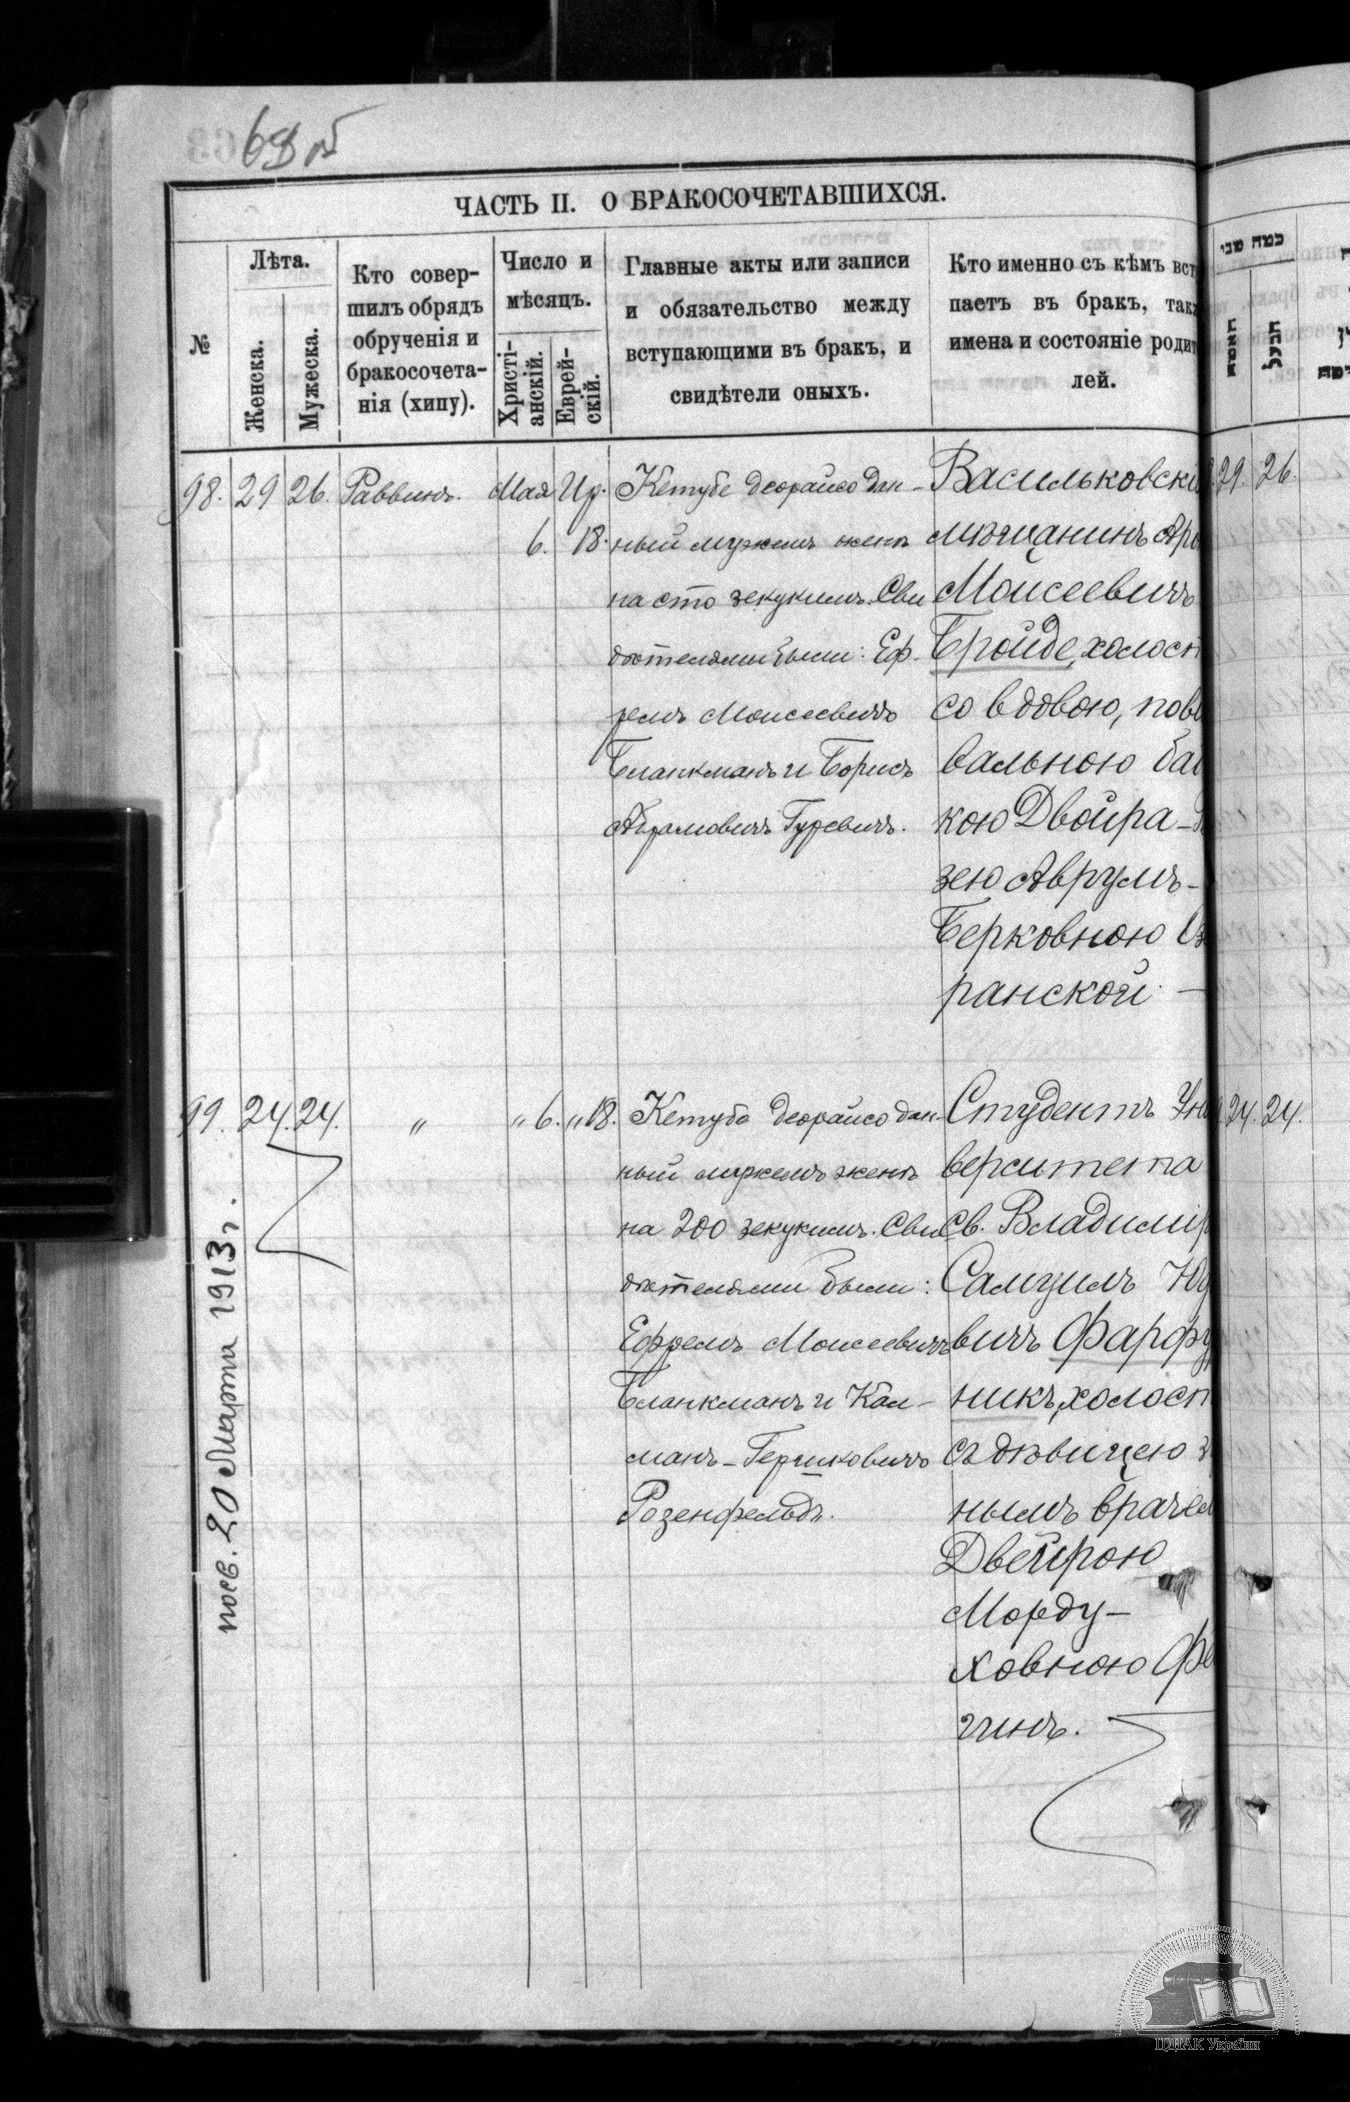 68 об
ЧАСТЬ II. О БРАКОСОЧЕТАВШИХСЯ.
№
Лѣта.
Женска.
Мужеска.
Кто совер-
шилъ обрядъ
обрученія и
бракосочета-
нія (хипу).
Число и
мѣсяцъ.
Христі-
анскій.
Еврей-
скій.
Главные акты или записи
и обязательство между
вступающими въ бракъ, и
свидѣтели оныхъ.
Кто именно съ кѣмъ вст
паетъ въ бракъ, так
имена и состояніе родит
лей.
98. 29 26. Раввинъ. Мая Ир.
6. 18.
Кетубе деорайсо дан-
ный мужемъ женѣ
на сто зекукимъ. Сви
дѣтелями были: Еф-
ремъ Моисеевичъ
Бланкманъ и Борисъ
Абрамовичъ Гуревичъ.
Васильковскі
мѣщанинъ Аро
Моисеевичъ
Бройде, холост
со вдовою, пови
вальною баб
кою Двойра-
зею Аврумъ-
Берковною
ранской. —
99. 24. 24. " " 6. " 18.
Кетубо деорайсо дан-
ный мужемъ женѣ
на 200 зекукимъ. Сви
дѣтелями были:
Ефремъ Моисеевичъ
Бланкманъ и Кал-
манъ-Гершковичъ
Розенфельдъ.
Студентъ Уни
верситета
Св. Владимір
Самуилъ Юд
вичъ Фарфу
никъ, холост
съ дѣвицею з
нымъ врачем
Двейрою
Морду-
ховною Фе
гинъ.
посв. 20 Марта 1913 г.
כמה שני
האשה
הבעל
29. 26.
24. 24.
ЦДІАК України